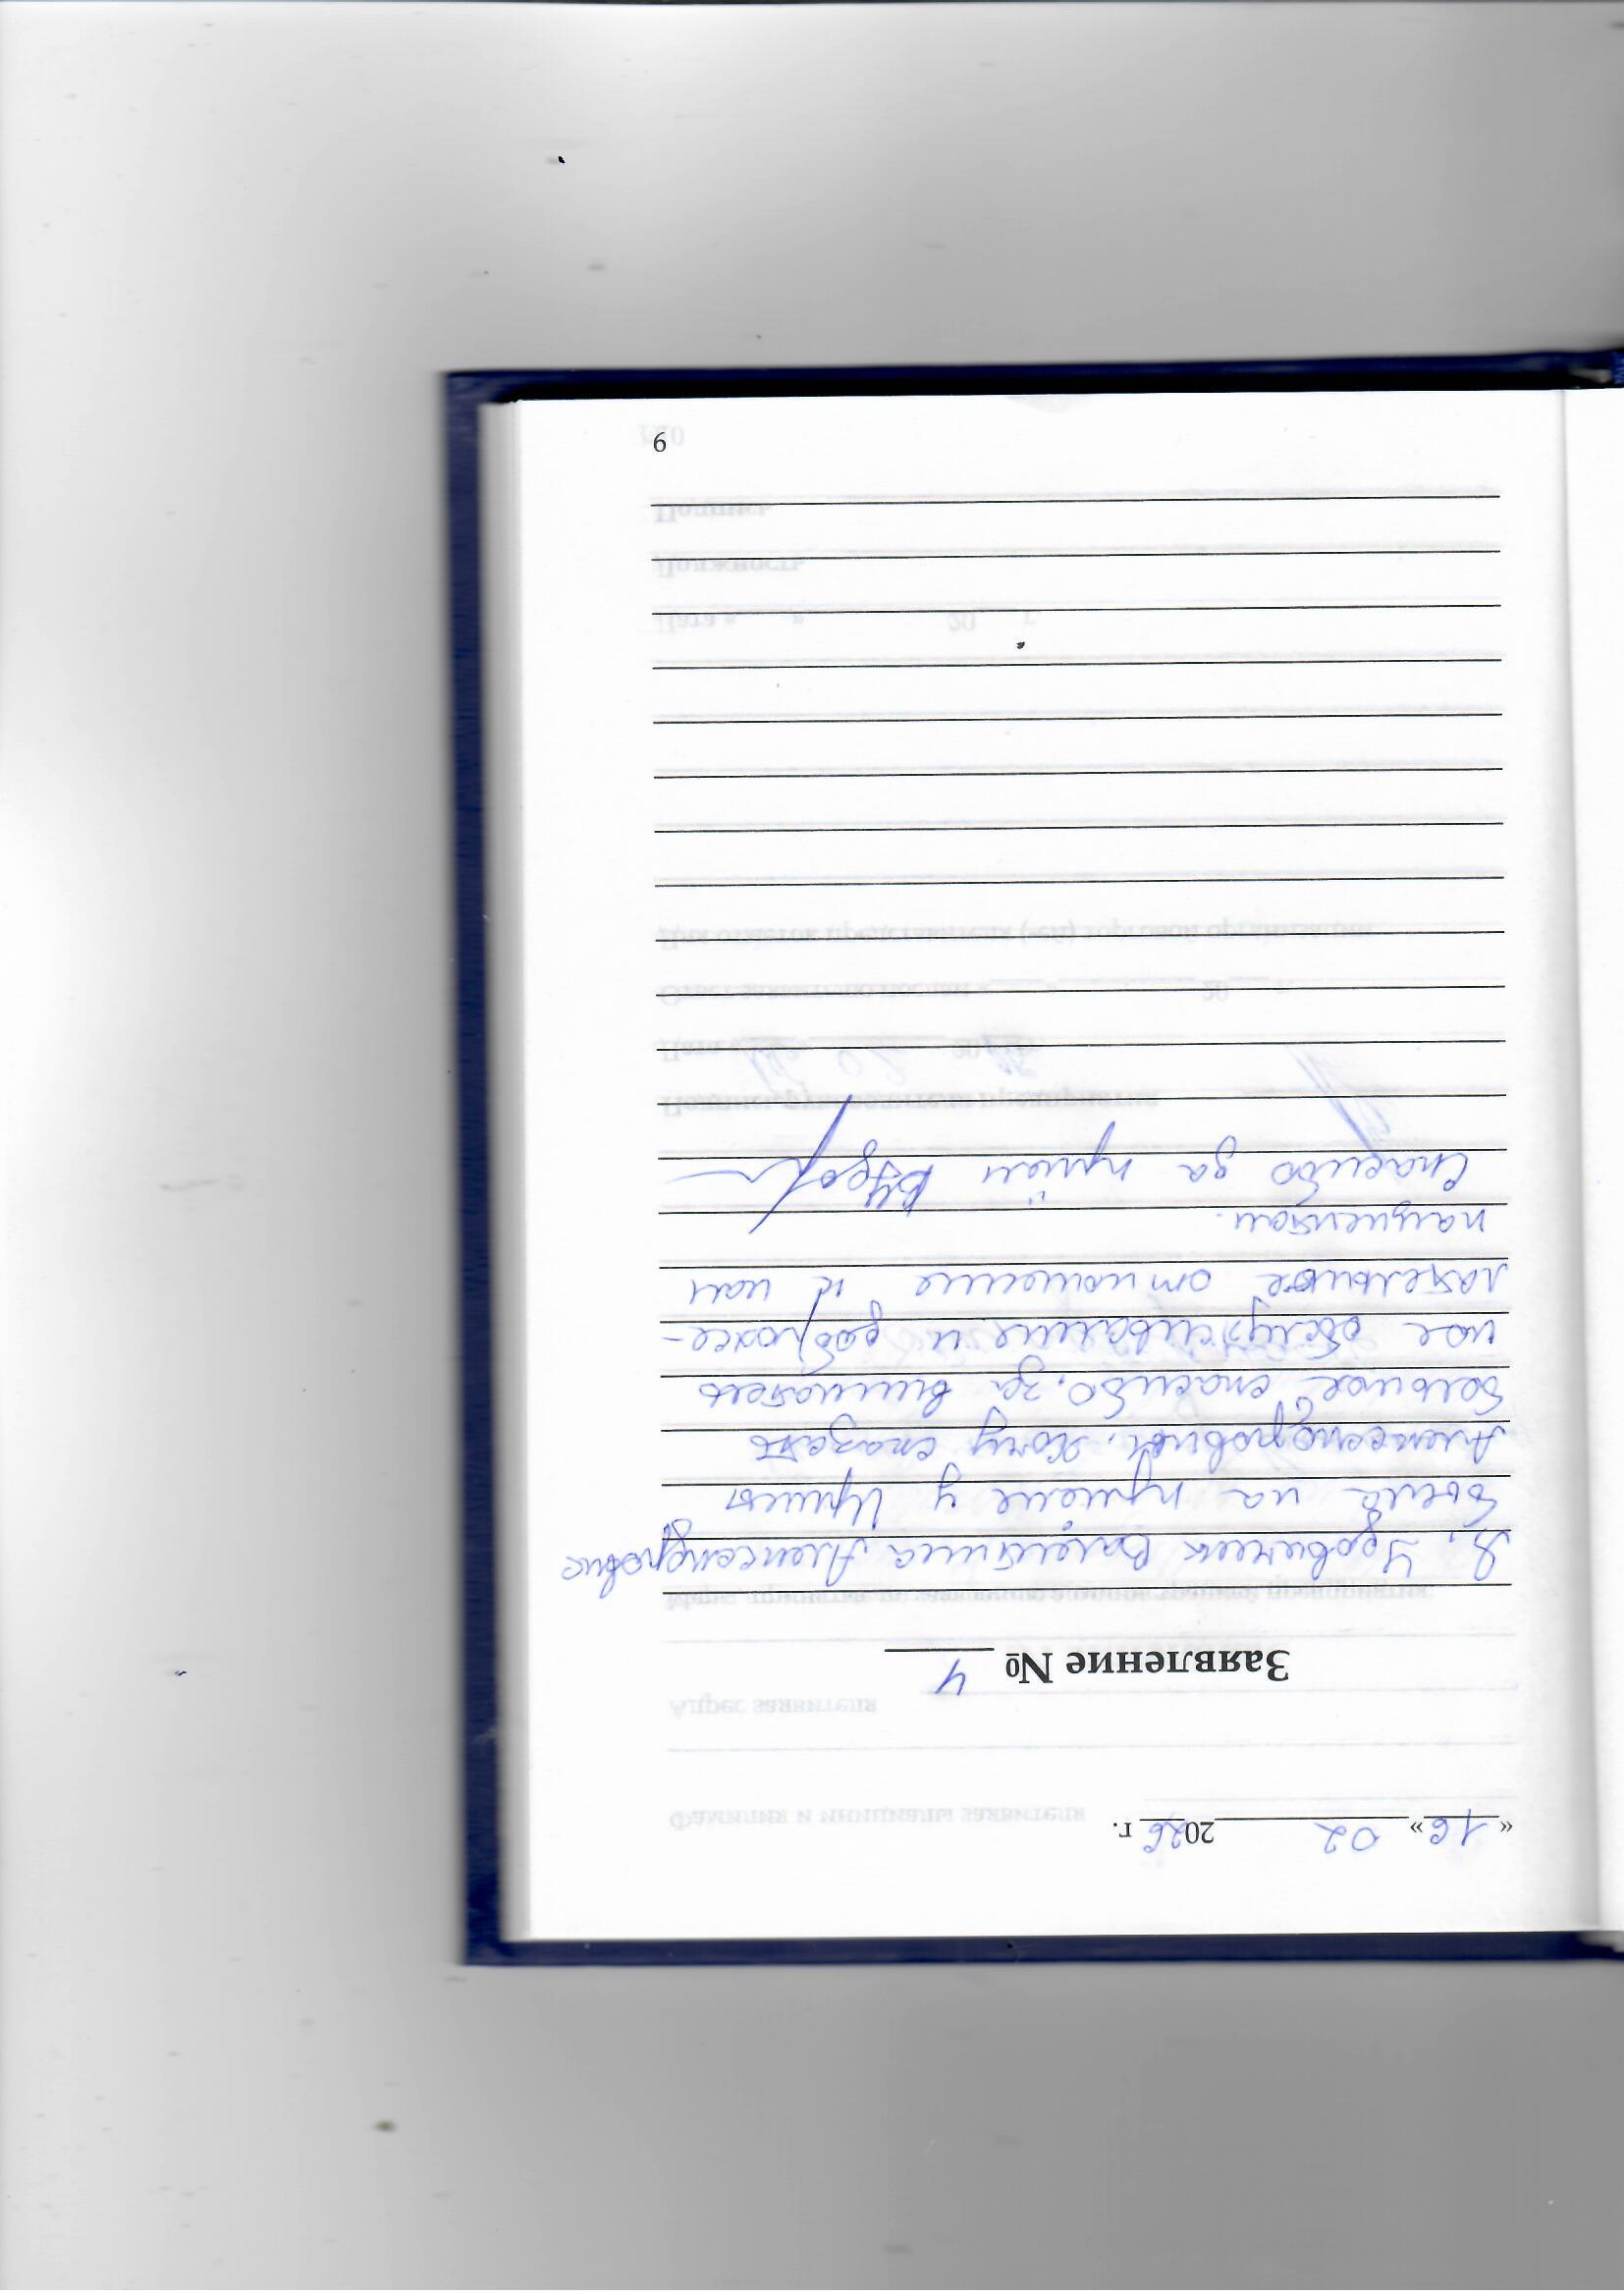 « 16 » 02 2026 г.
Заявление № 4
Я, Валентина Александровна
была на приеме у Ирины
Александровны. Хочу сказать
большое спасибо, за вниматель
ное обслуживание и доброже-
лательное отношение к нам
пациентам.
Спасибо за приём
6